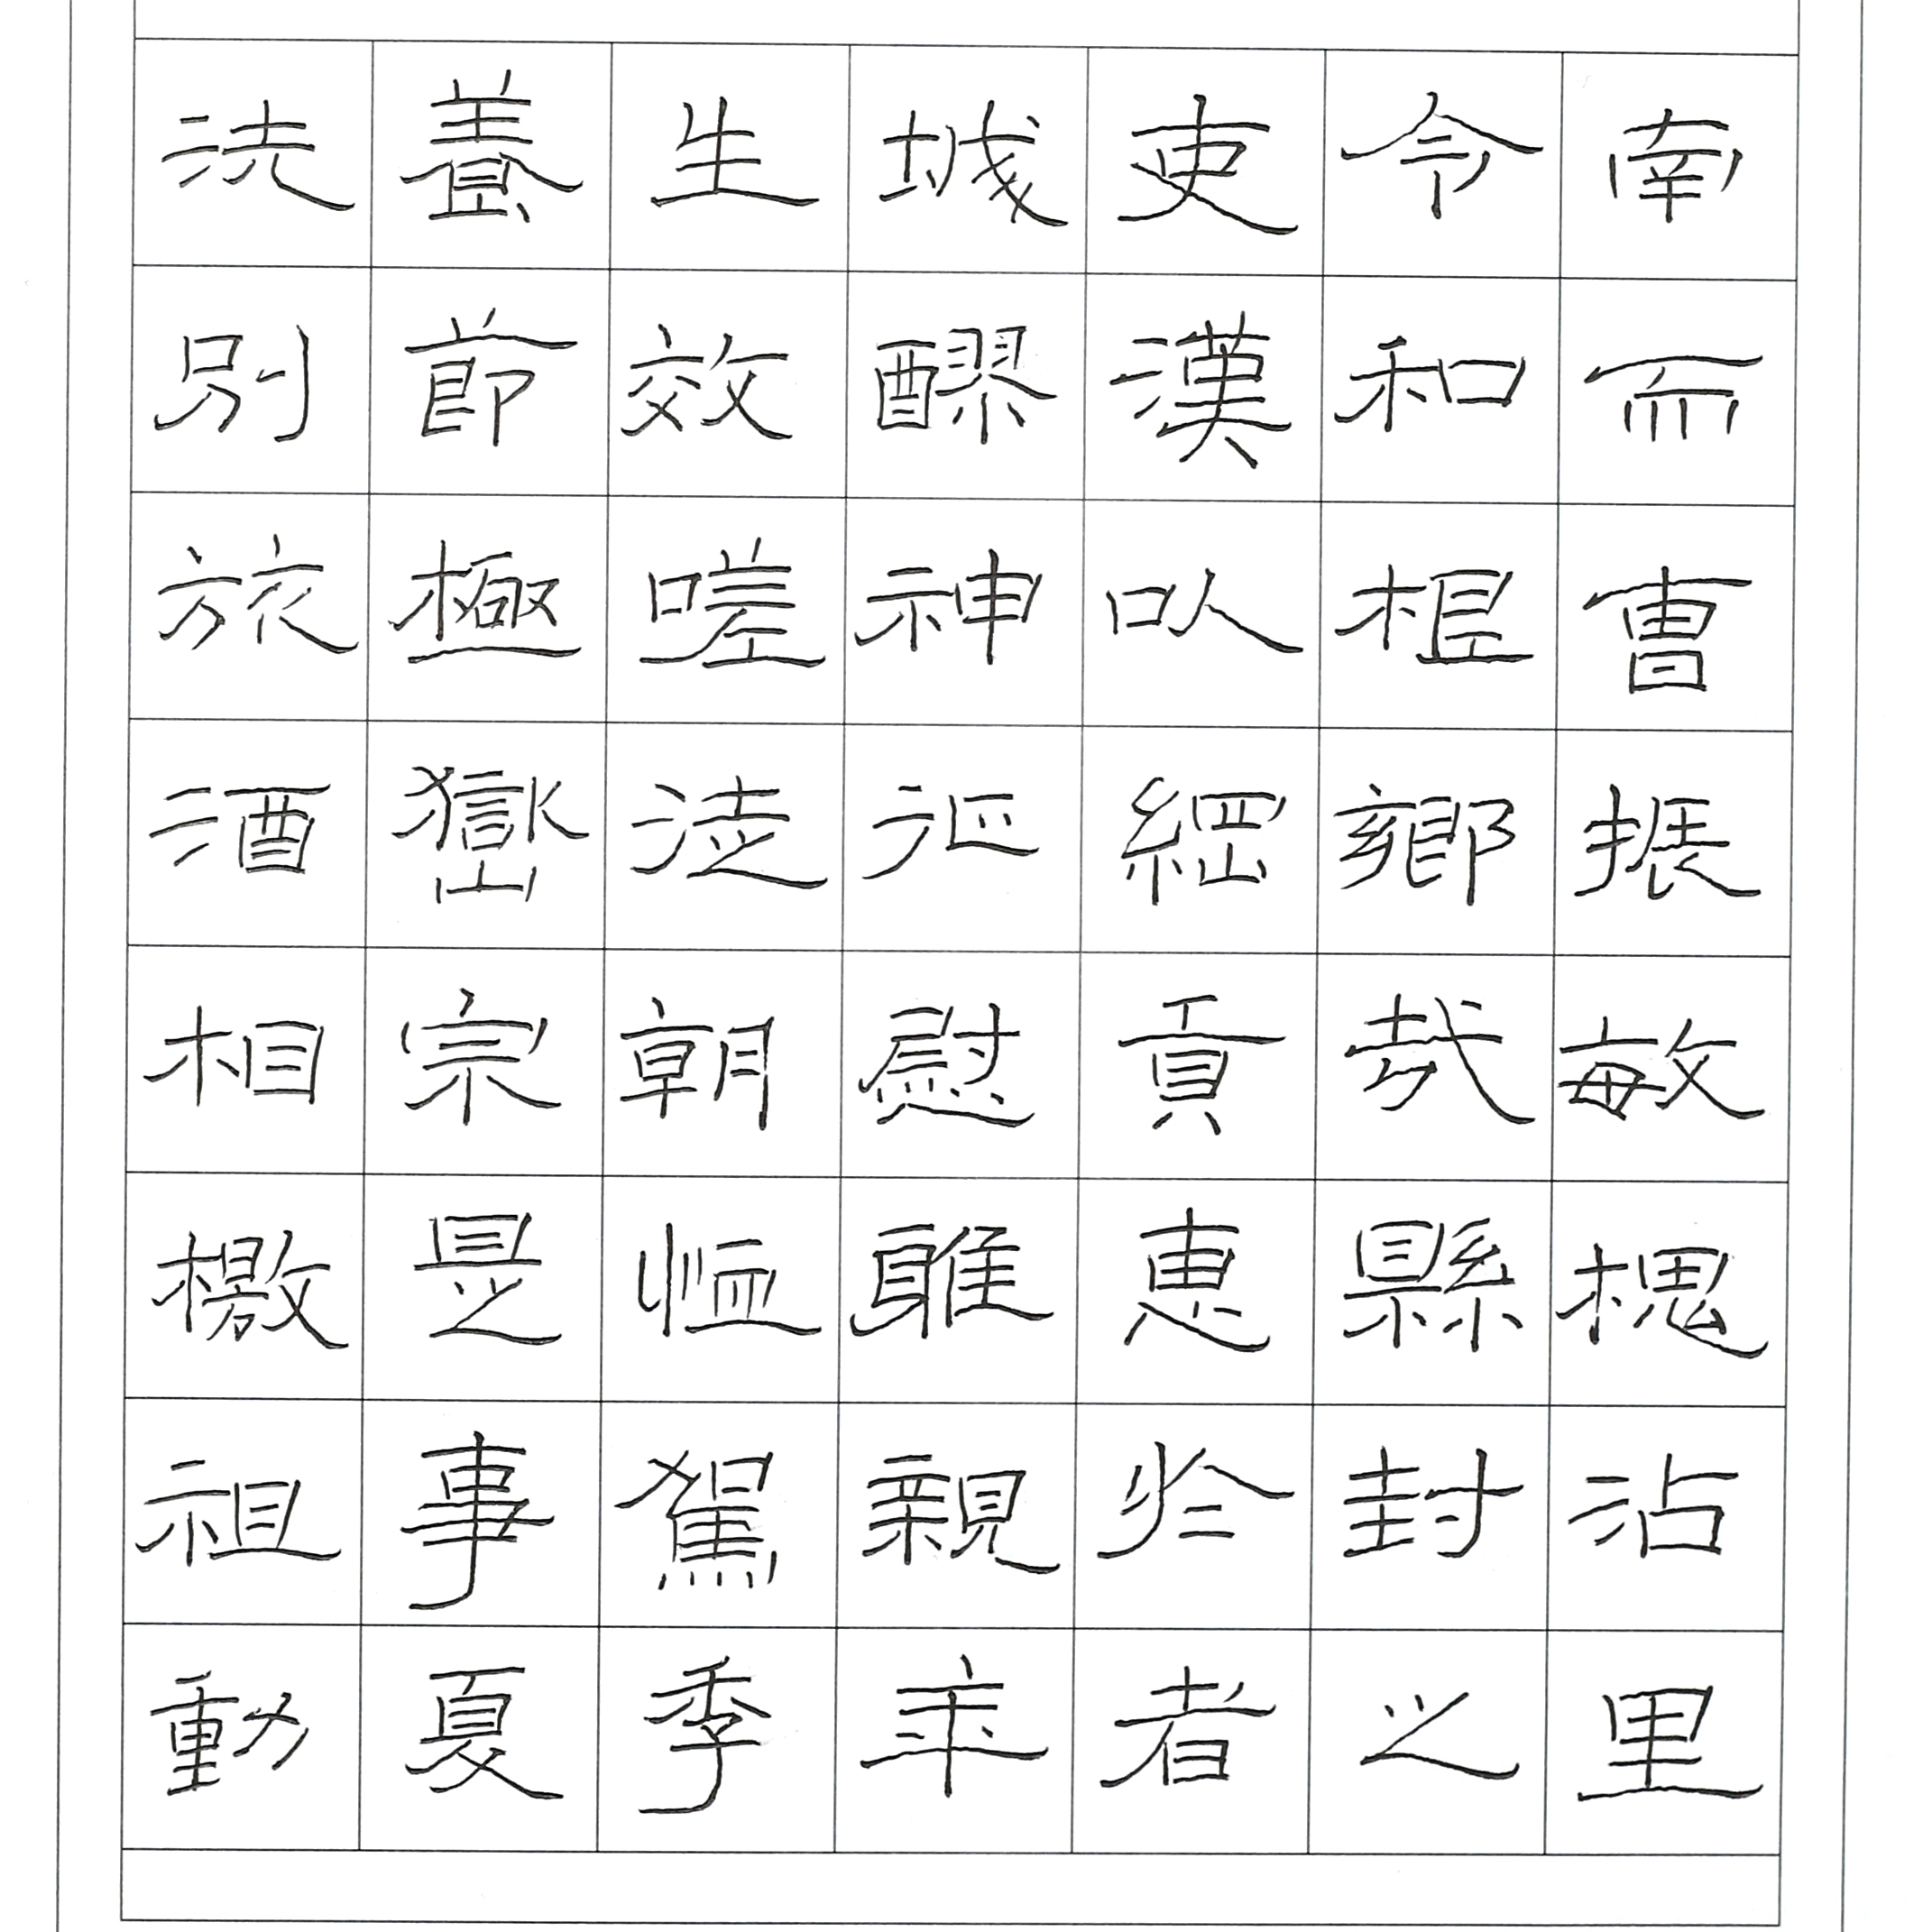 南而曹振敏槐沾里
令和鄉哉縣封之
吏漢以綱貢惠於者
城醪神慰親年
生效嗟朝恤駕季
養節極嶽宗是事夏
洗別旅酒相檄祖動